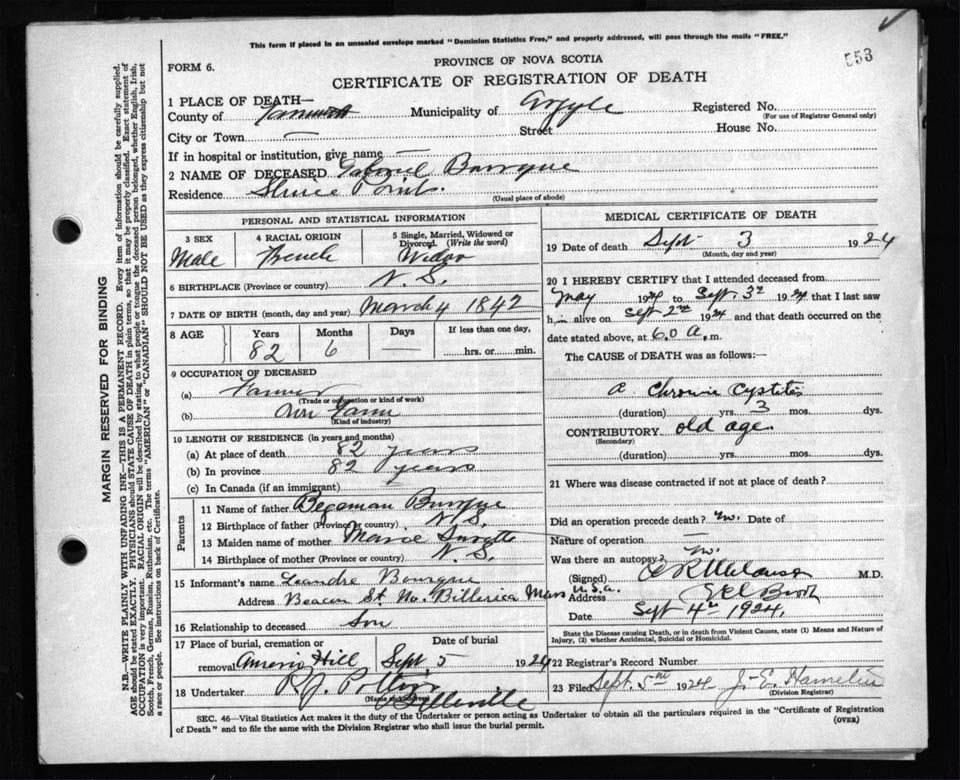 This form if placed in an unsealed envelope marked "Dominion Statistics Free," and properly addressed, will pass through the mails "FREE."
553
FORM 6.
PROVINCE OF NOVA SCOTIA
CERTIFICATE OF REGISTRATION OF DEATH
1 PLACE OF DEATH—
County of Yarmouth Municipality of Argyle Registered No.
(For use of Registrar General only)
City or Town — Street House No.
If in hospital or institution, give name —
2 NAME OF DECEASED Gabriel Bourque
Residence Sluice Point.
(Usual place of abode)
PERSONAL AND STATISTICAL INFORMATION
3 SEX 4 RACIAL ORIGIN 5 Single, Married, Widowed or Divorced. (Write the word)
Male French Widow
6 BIRTHPLACE (Province or country) N. S.
7 DATE OF BIRTH (month, day and year) March 4 1842
8 AGE Years Months Days If less than one day,
82 6 — hrs. or min.
9 OCCUPATION OF DECEASED
(a) Farmer
(Trade or occupation or kind of work)
(b) Own Farm
(Kind of industry)
10 LENGTH OF RESIDENCE (in years and months)
(a) At place of death 82 years
(b) In province 82 years
(c) In Canada (if an immigrant)
Parents
11 Name of father Bourque
12 Birthplace of father (Province or country) N. S.
13 Maiden name of mother Marie Surette
14 Birthplace of mother (Province or country) N. S.
15 Informant's name Leandre Bourque
Address Beacon St. No. Billerica Mass U.S.a.
16 Relationship to deceased Son
17 Place of burial, cremation or removal Date of burial
Hill Sept. 5 1924
18 Undertaker R. J.
(Name and address)
Belleville
MEDICAL CERTIFICATE OF DEATH
19 Date of death Sept 3 1924
(Month, day and year)
20 I HEREBY CERTIFY that I attended deceased from
May 1924 to Sept. 3rd 1924 that I last saw
him alive on Sept 2nd 1924 and that death occurred on the
date stated above, at 6.0 a.m.
The CAUSE OF DEATH was as follows:—
a Chronic Cystitis
(duration) yrs. 3 mos. dys.
CONTRIBUTORY old age.
(Secondary)
(duration) yrs. mos. dys.
21 Where was disease contracted if not at place of death?
Did an operation precede death? No. Date of
Nature of operation —
Was there an autopsy? No.
(Signed) M.D.
Address Eel Brook
Date Sept 4th 1924.
State the Disease causing Death, or in death from Violent Causes, state (1) Means and Nature of Injury, (2) whether Accidental, Suicidal or Homicidal.
22 Registrar's Record Number
23 Filed Sept. 5th 1924 J. E. Hamelin
(Division Registrar)
SEC. 46—Vital Statistics Act makes it the duty of the Undertaker or person acting as Undertaker to obtain all the particulars required in the "Certificate of Registration
of Death" and to file the same with the Division Registrar who shall issue the burial permit.
(OVER)
MARGIN RESERVED FOR BINDING
N.B.—WRITE PLAINLY WITH UNFADING INK—THIS IS A PERMANENT RECORD. Every item of information should be carefully supplied.
AGE should be stated EXACTLY. PHYSICIANS should STATE CAUSE OF DEATH in plain terms, so that it may be properly classified. Exact statement of
OCCUPATION is very important. RACIAL ORIGIN will be described by stating to what people or tongue the deceased person belonged, whether English, Irish,
Scotch, French, German, Russian, Ruthenian, etc. The terms "AMERICAN" or "CANADIAN" SHOULD NOT BE USED as they express citizenship but not
a race or people. See instructions on back of Certificate.